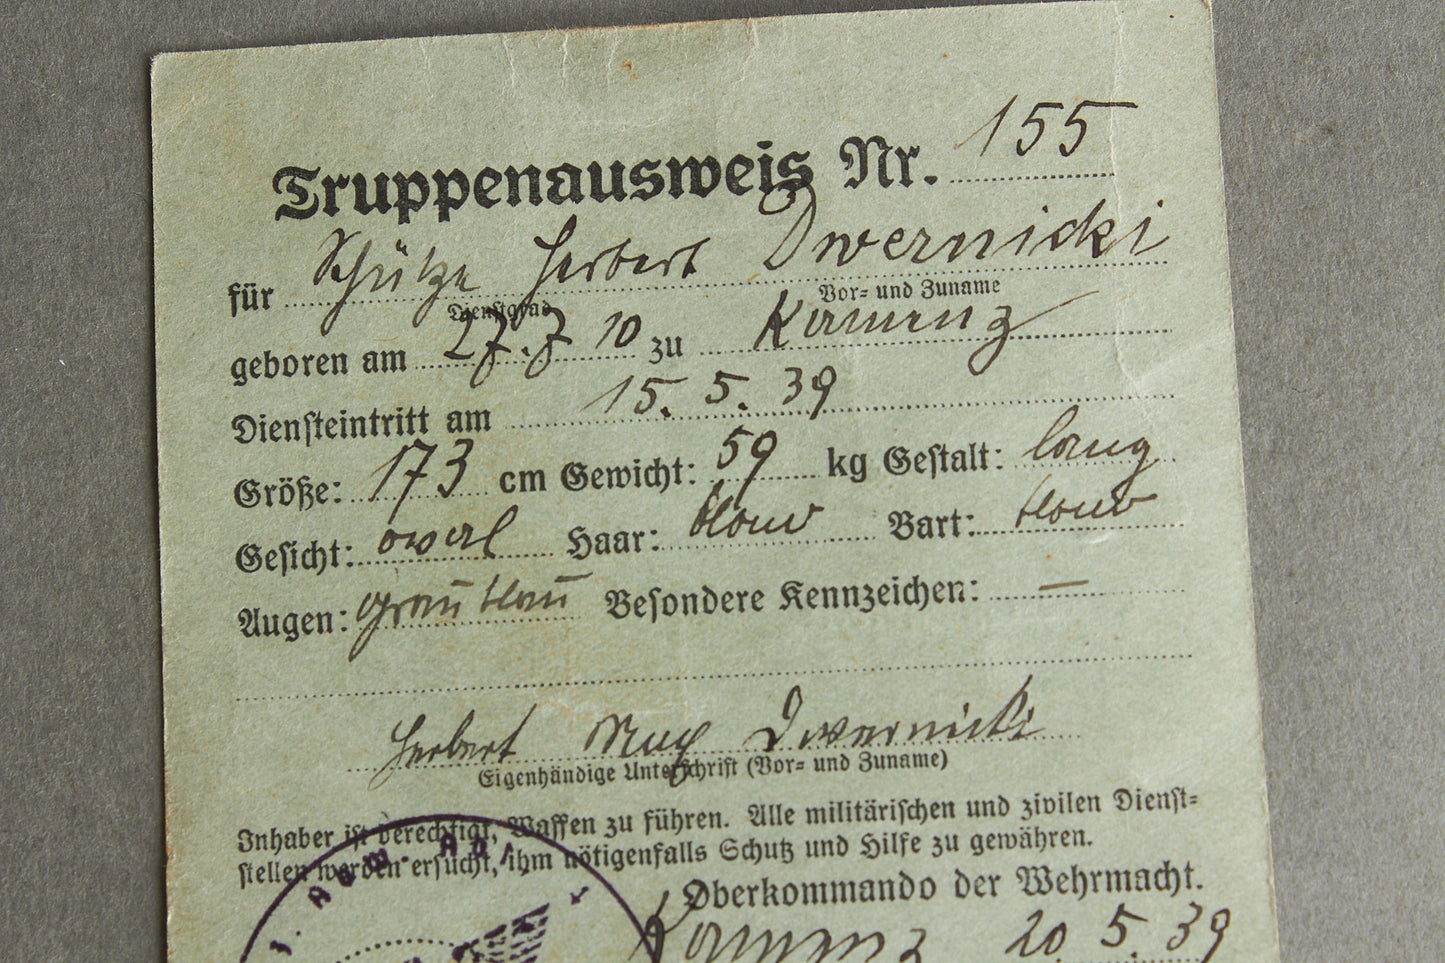 Truppenausweis Nr. 155
für Schütze Herbert Dwernicki
Dienstgrad Vor- und Zuname
geboren am 27.7 10 zu Kamenz
Diensteintritt am 15. 5. 39
Größe: 173 cm Gewicht: 59 kg Gestalt: lang
Gesicht: owal Haar: blond Bart: blond
Augen: graublau Besondere Kennzeichen: —
Herbert Max Dwernicki
Eigenhändige Unterschrift (Vor- und Zuname)
Inhaber ist berechtigt, Waffen zu führen. Alle militärischen und zivilen Dienst-
stellen werden ersucht, ihm nötigenfalls Schutz und Hilfe zu gewähren.
Oberkommando der Wehrmacht.
Kamenz 20. 5. 39